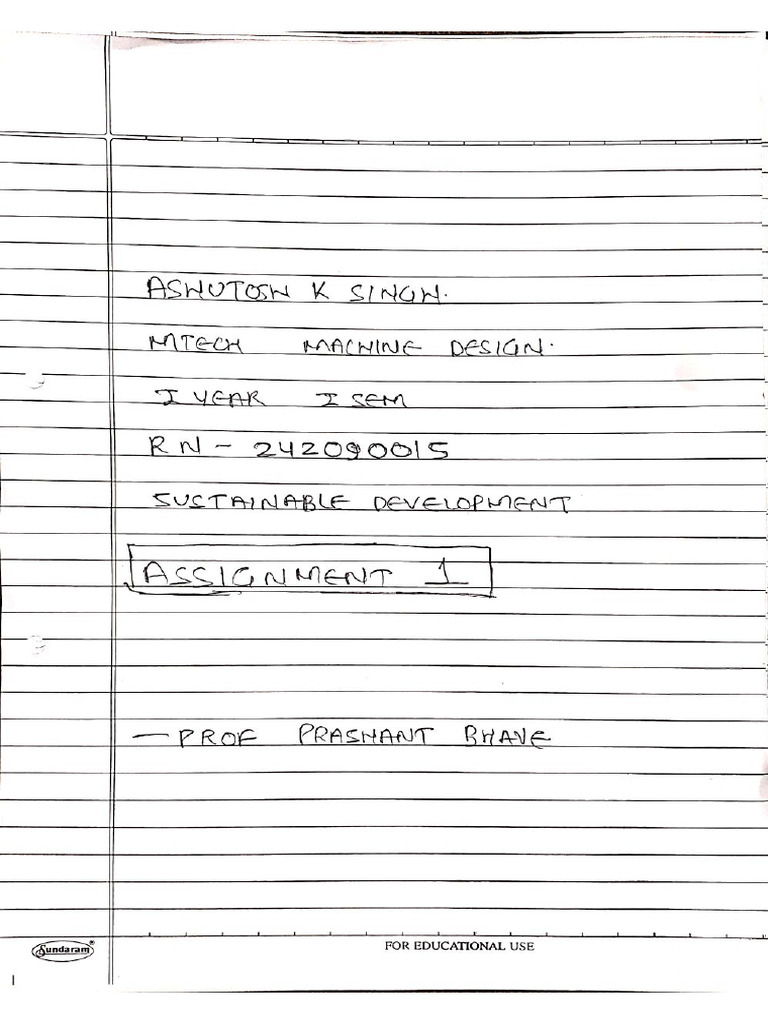 ASHUTOSH K SINGH.
MTECH MACHINE DESIGN.
I YEAR I SEM
RN - 242090015
SUSTAINABLE DEVELOPMENT
ASSIGNMENT 1
— PROF PRASHANT BHAVE
Sundaram®
FOR EDUCATIONAL USE